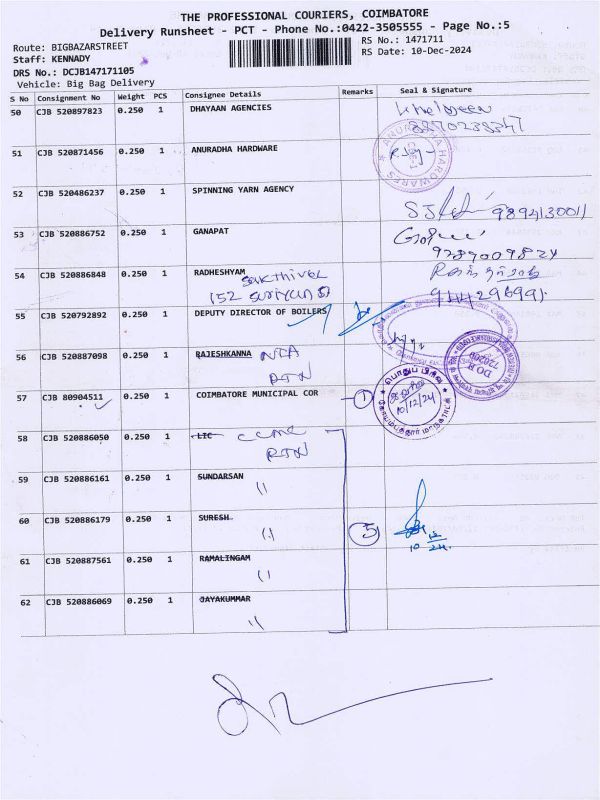 THE PROFESSIONAL COURIERS, COIMBATORE
Delivery Runsheet - PCT - Phone No.:0422-3505555 - Page No.:5
Route: BIGBAZARSTREET
RS No.: 1471711
Staff: KENNADY
RS Date: 10-Dec-2024
DRS No.: DCJB147171105
Vehicle: Big Bag Delivery
S No Consignment No Weight PCS Consignee Details Remarks Seal & Signature
50 CJB 520897823 0.250 1 DHAYAAN AGENCIES
51 CJB 520871456 0.250 1 ANURADHA HARDWARE
ANURADHA HARDWARES
52 CJB 520486237 0.250 1 SPINNING YARN AGENCY
9894130011
53 CJB 520886752 0.250 1 GANAPAT
9787009824
54 CJB 520886848 0.250 1 RADHESHYAM
sakthivel
152
55 CJB 520792892 0.250 1 DEPUTY DIRECTOR OF BOILERS
56 CJB 520887098 0.250 1 RAJESHKANNA NTA
RTN
57 CJB 80904511 0.250 1 COIMBATORE MUNICIPAL COR 1
பொதுப் பிரிவு
10/12/24
கோயம்புத்தூர் மாநகராட்சி
58 CJB 520886050 0.250 1 LIC CCMC
RTN
59 CJB 520886161 0.250 1 SUNDARSAN
"
60 CJB 520886179 0.250 1 SURESH
" 5
10 12/24
61 CJB 520887561 0.250 1 RAMALINGAM
"
62 CJB 520886069 0.250 1 JAYAKUMMAR
"